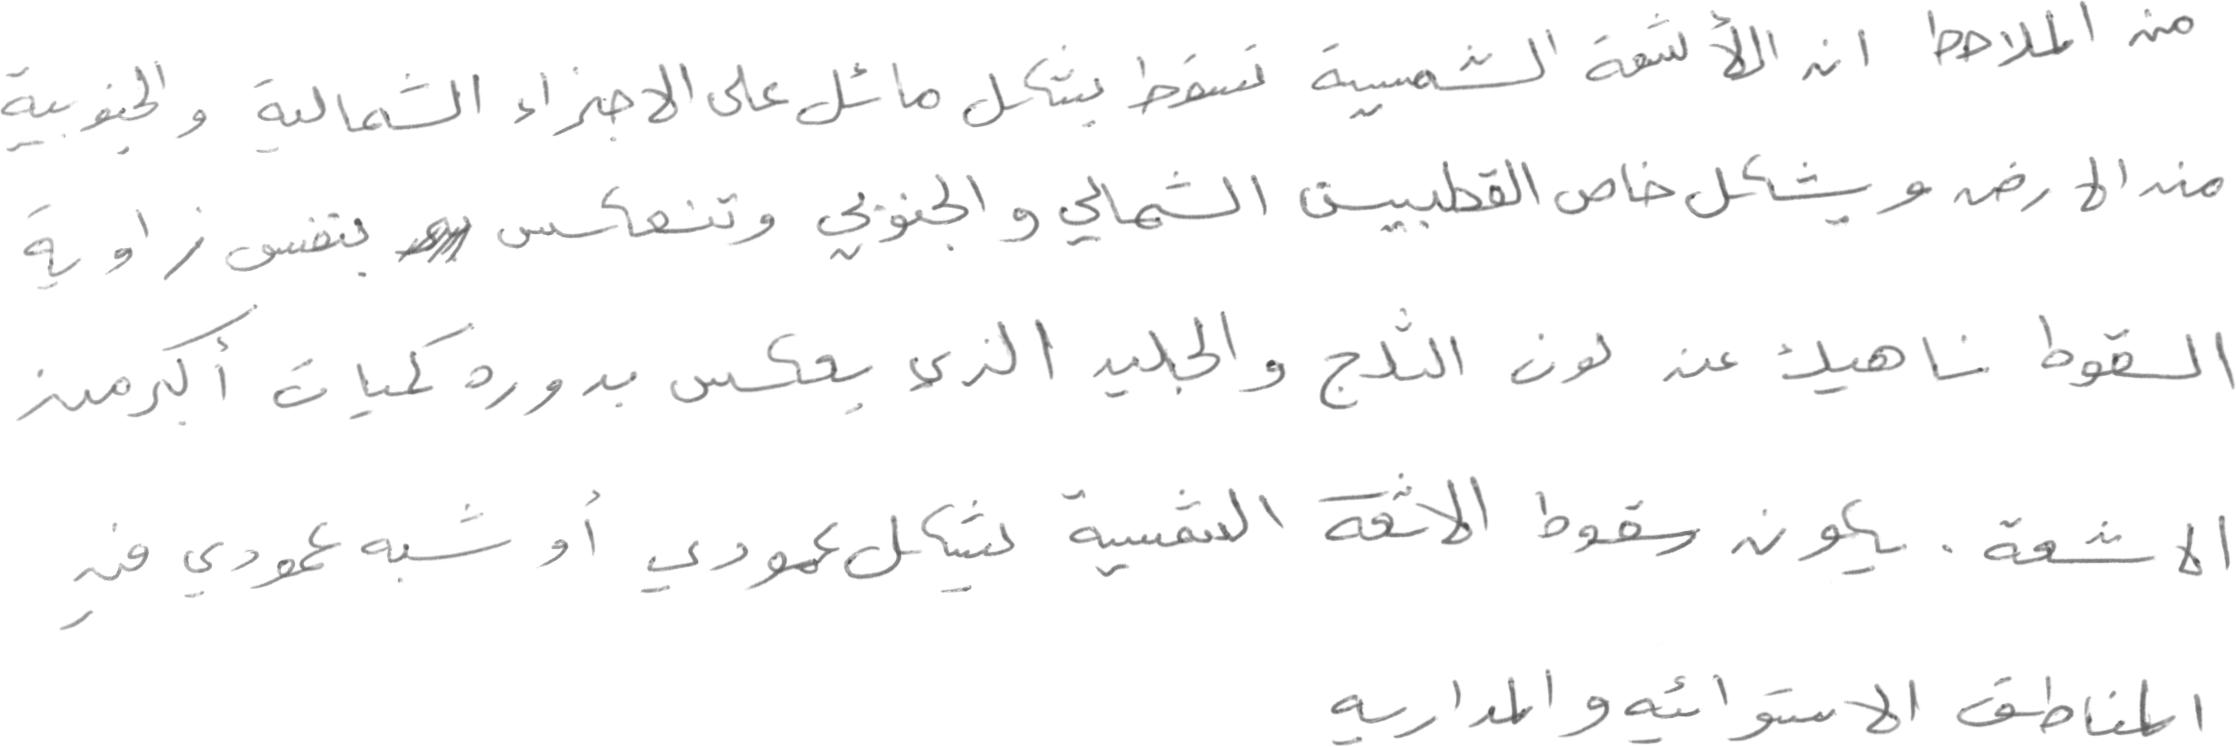 من الملاحظ ان الأشعة الشمسية تسقط بشكل مائل على الاجزاء الشمالية والجنوبية
من الارض وبشكل خاص القطبين الشمالي والجنوبي وتنعكس بنفس زاوية
السقوط ناهيك عن لون الثلج والجليد الذي يعكس بدوره كميات أكبر من
الاشعة . يكون سقوط الاشعة الشمسية بشكل عمودي أو شبه عمودي في
المناطق الاستوائيه والمداريه